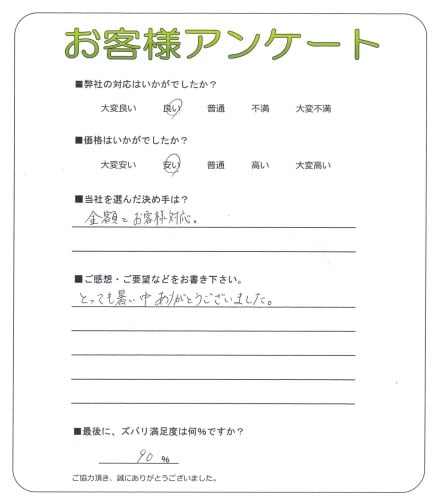 お客様アンケート
■弊社の対応はいかがでしたか？
大変良い 良い 普通 不満 大変不満
■価格はいかがでしたか？
大変安い 安い 普通 高い 大変高い
■当社を選んだ決め手は？
金額とお客様対応。
■ご感想・ご要望などをお書き下さい。
とっても暑い中ありがとうございました。
■最後に、ズバリ満足度は何％ですか？
90 ％
ご協力頂き、誠にありがとうございました。